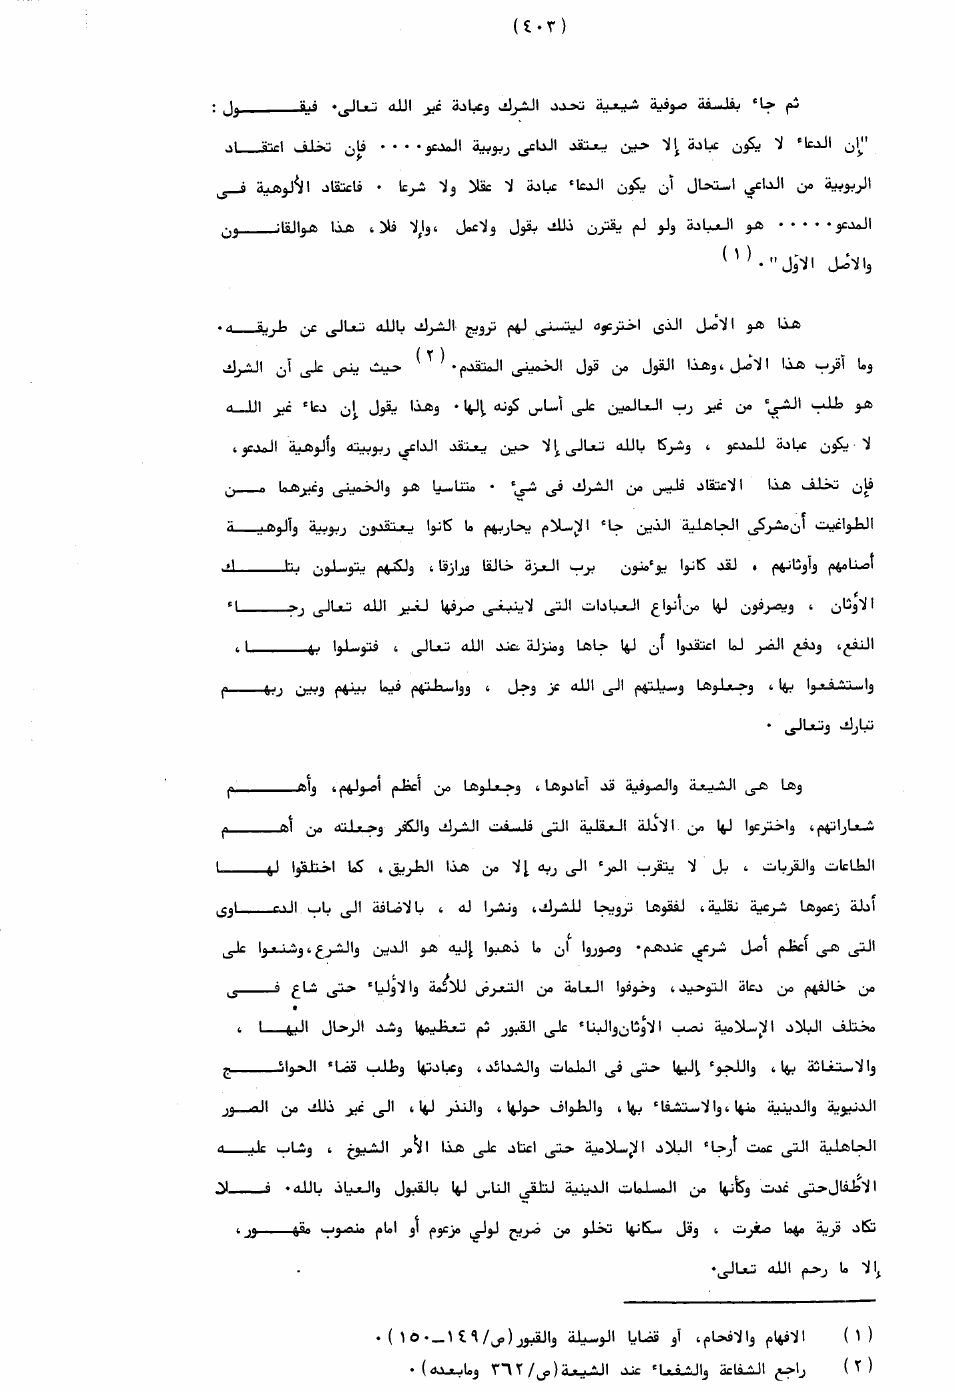 (٤٠٣)
ثم جاء بفلسفة صوفية شيعية تحدد الشرك وعبادة غير الله تعالى٠ فيقـــــول :
"إن الدعاء لا يكون عبادة إلا حين يعتقد الداعى ربوبية المدعو ٠٠٠٠ فإن تخلف اعتقـــاد
الربوبية من الداعي استحال أن يكون الدعاء عبادة لا عقلا ولا شرعا ٠ فاعتقاد الألوهية فـــى
المدعو ٠٠٠٠٠ هو العبادة ولو لم يقترن ذلك بقول ولاعمل ،وإلا فلا، هذا هوالقانـــون
والأصل الأول"٠ (١)
هذا هو الأصل الذى اخترعوه ليتسنى لهم ترويج الشرك بالله تعالى عن طريقـــه٠
وما أقرب هذا الأصل ،وهذا القول من قول الخمينى المتقدم٠ (٢) حيث ينص على أن الشرك
هو طلب الشيء من غير رب العالمين على أساس كونه إلها٠ وهذا يقول إن دعاء غير اللـه
لا يكون عبادة للمدعو ، وشركا بالله تعالى إلا حين يعتقد الداعي ربوبيته وألوهية المدعو،
فإن تخلف هذا الاعتقاد فليس من الشرك فى شيء ٠ متناسيا هو والخمينى وغيرهما مـــن
الطواغيت أن مشركى الجاهلية الذين جاء الإسلام يحاربهم ما كانوا يعتقدون ربوبية وألوهيـــة
أصنامهم وأوثانهم ، لقد كانوا يؤمنون برب العزة خالقا ورازقا، ولكنهم يتوسلون بتلـــك
الأوثان ، ويصرفون لها من أنواع العبادات التى لاينبغى صرفها لغير الله تعالى رجـــاء
النفع، ودفع الضر لما اعتقدوا أن لها جاها ومنزلة عند الله تعالى ، فتوسلوا بهـــا،
واستشفعوا بها، وجعلوها وسيلتهم الى الله عز وجل ، وواسطتهم فيما بينهم وبين ربهـــم
تبارك وتعالى ٠
وها هى الشيعة والصوفية قد أعادوها، وجعلوها من أعظم أصولهم، وأهـــم
شعاراتهم، واخترعوا لها من الأدلة العقلية التى فلسفت الشرك والكفر وجعلته من أهـــم
الطاعات والقربات ، بل لا يتقرب المرء الى ربه إلا من هذا الطريق، كما اختلقوا لهـــا
أدلة زعموها شرعية نقلية، لفقوها ترويجا للشرك، ونشرا له ، بالاضافة الى باب الدعـــاوى
التى هى أعظم أصل شرعي عندهم٠ وصوروا أن ما ذهبوا إليه هو الدين والشرع، وشنعوا على
من خالفهم من دعاة التوحيد، وخوفوا العامة من التعرض للأئمة والأولياء حتى شاع فـــى
مختلف البلاد الإسلامية نصب الأوثان والبناء على القبور ثم تعظيمها وشد الرحال اليهـــا ،
والاستغاثة بها، واللجوء إليها حتى فى الملمات والشدائد، وعبادتها وطلب قضاء الحوائـــج
الدنيوية والدينية منها، والاستشفاء بها، والطواف حولها، والنذر لها، الى غير ذلك من الصور
الجاهلية التى عمت أرجاء البلاد الإسلامية حتى اعتاد على هذا الأمر الشيوخ ، وشاب عليـــه
الأطفال حتى غدت وكأنها من المسلمات الدينية لتلقي الناس لها بالقبول والعياذ بالله٠ فـــلا
تكاد قرية مهما صغرت ، وقل سكانها تخلو من ضريح لولي مزعوم أو امام منصوب مقهـــور،
إلا ما رحم الله تعالى٠
(١) الافهام والافحام، أو قضايا الوسيلة والقبور (ص/١٤٩ــ١٥٠)٠
(٢) راجع الشفاعة والشفعاء عند الشيعة (ص/٣٦٢ ومابعده)٠